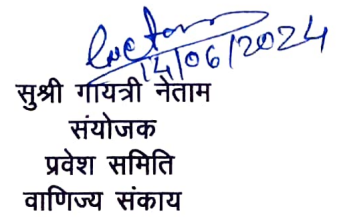 14/06/2024
सुश्री गायत्री नेताम
संयोजक
प्रवेश समिति
वाणिज्य संकाय